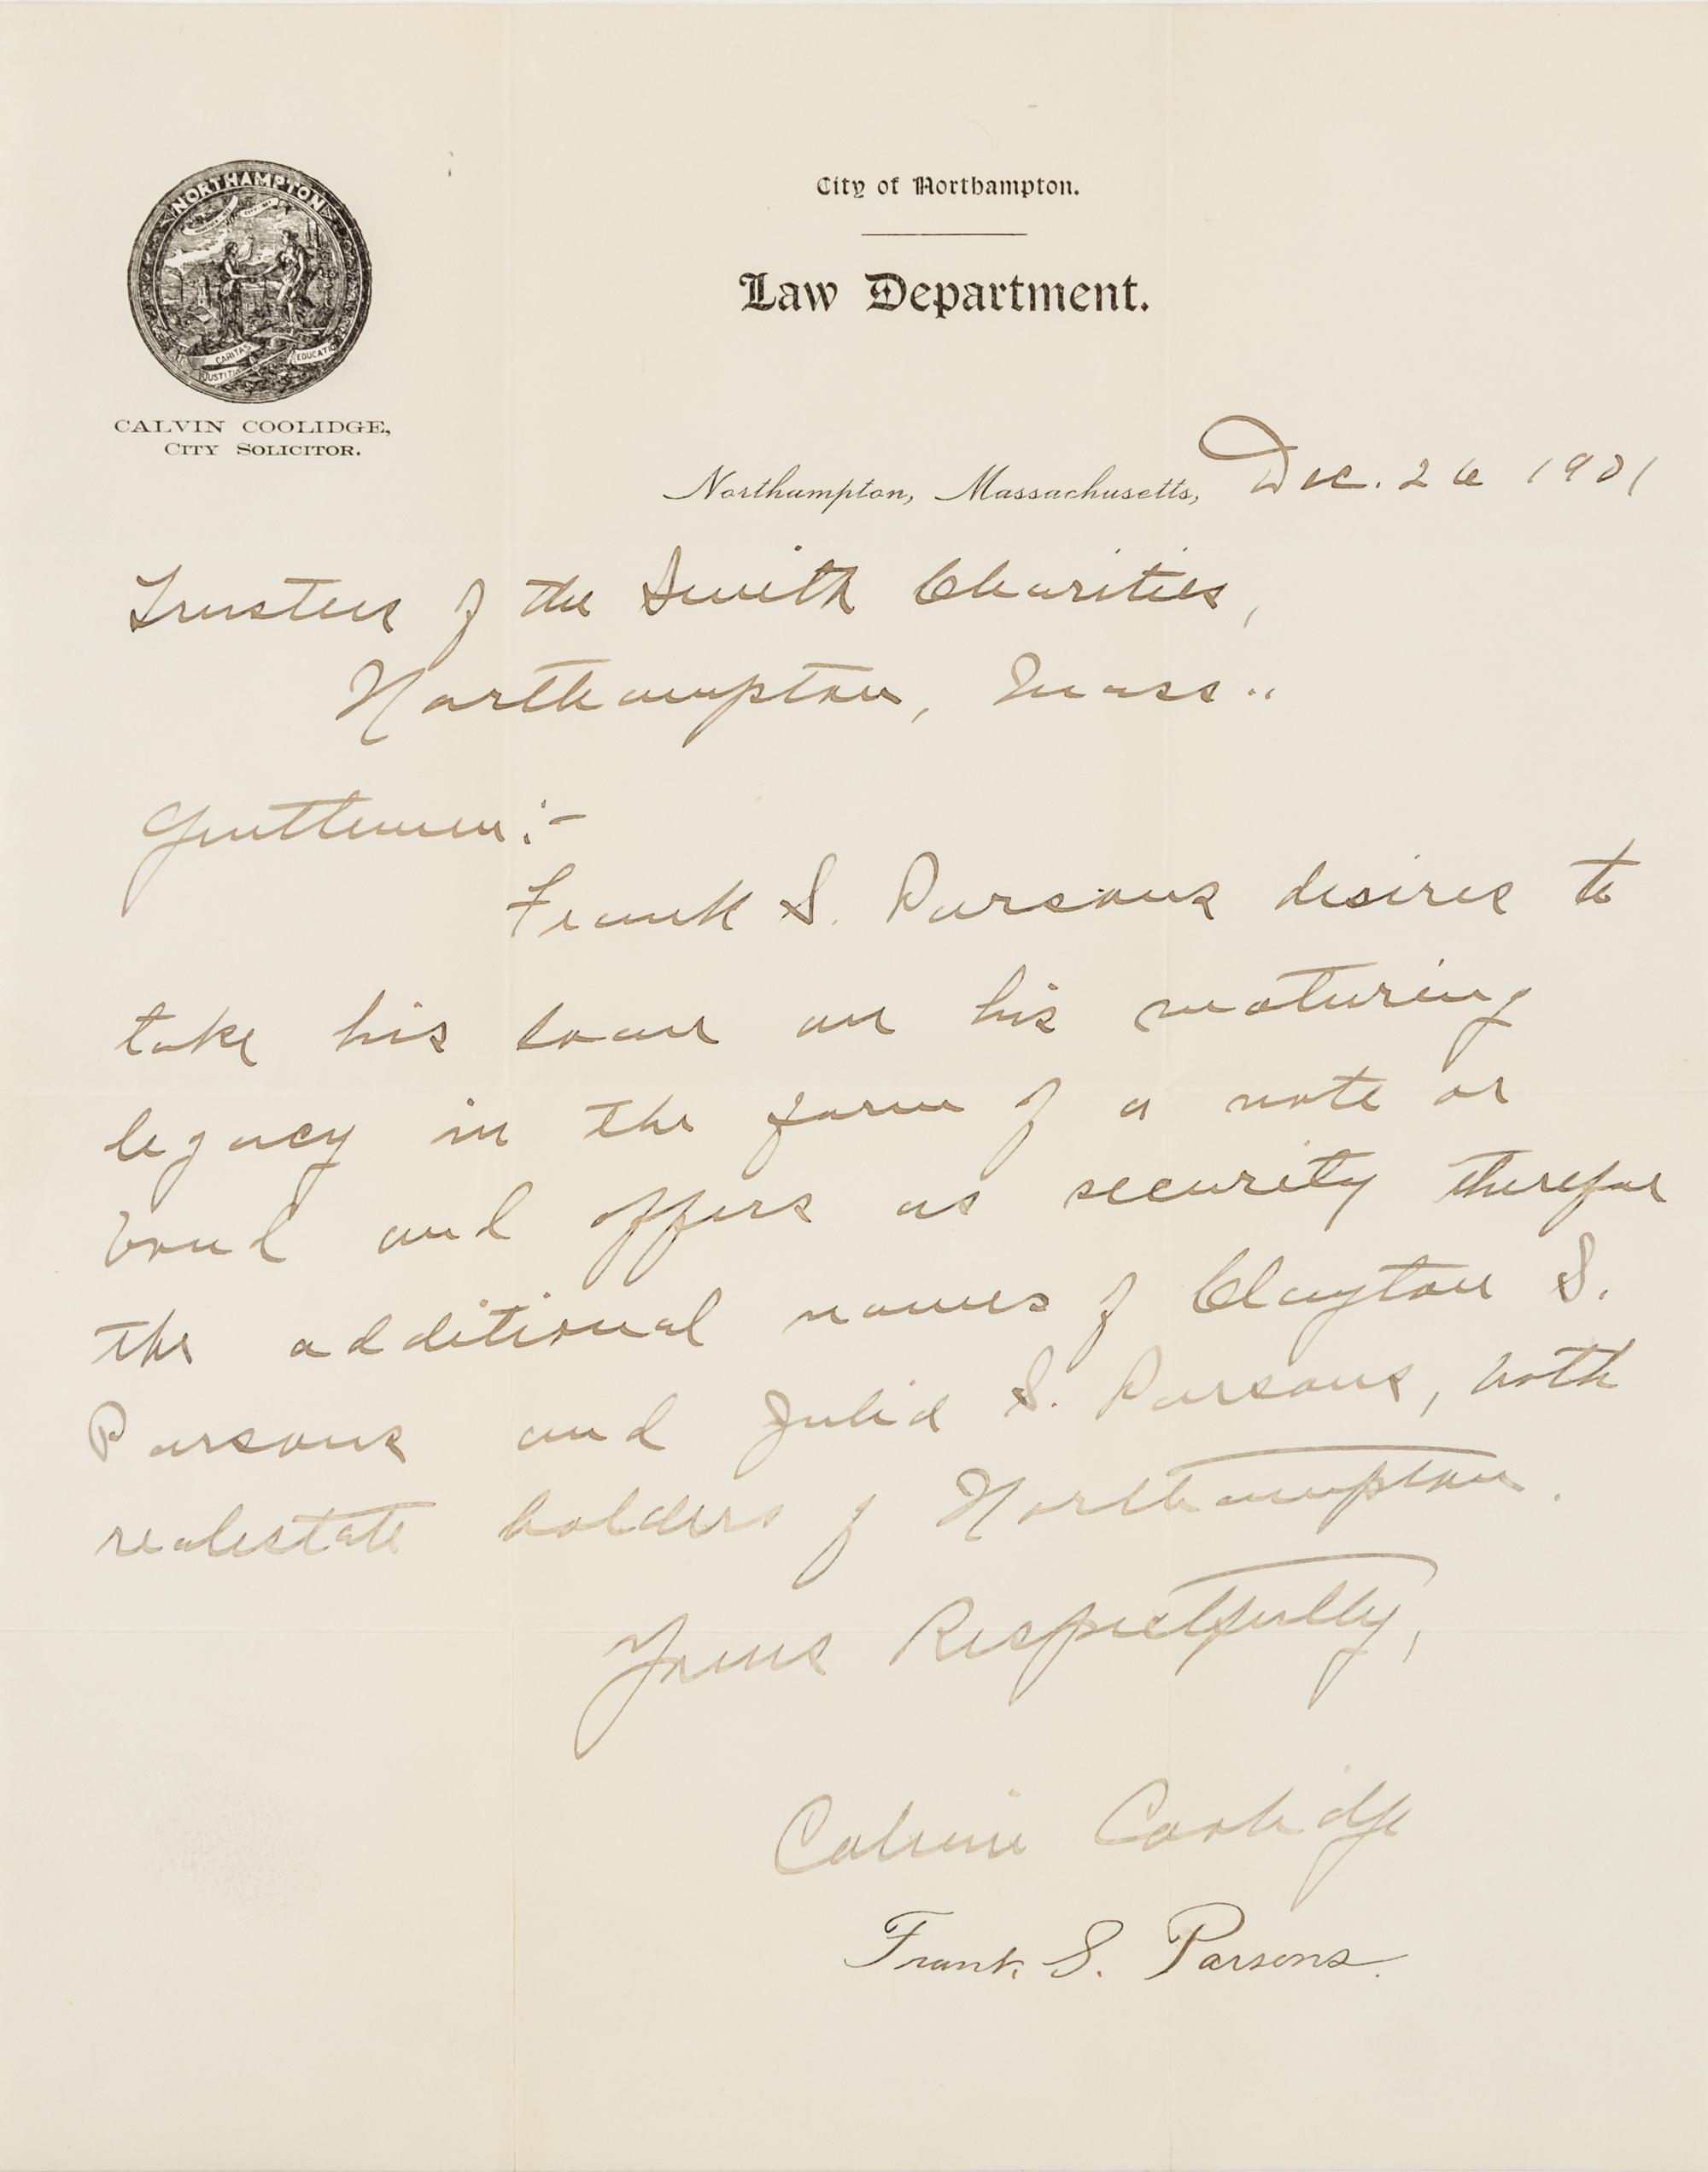 NORTHAMPTON
CARITAS
EDUCATIO
JUSTITIA
CALVIN COOLIDGE,
CITY SOLICITOR.
City of Northampton.
Law Department.
Northampton, Massachusetts, Dec. 26 1901
Trustees of the Smith Charities,
Northampton, Mass..
Gentlemen:-
Frank S. Parsons desires to
take his loan on his maturing
legacy in the form of a note or
bond and offers as security therefor
the additional names of Clayton S.
Parsons and Julia S. Parsons, both
realestate holders of Northampton.
Yours Respectfully,
Calvin Coolidge
Frank S. Parsons.